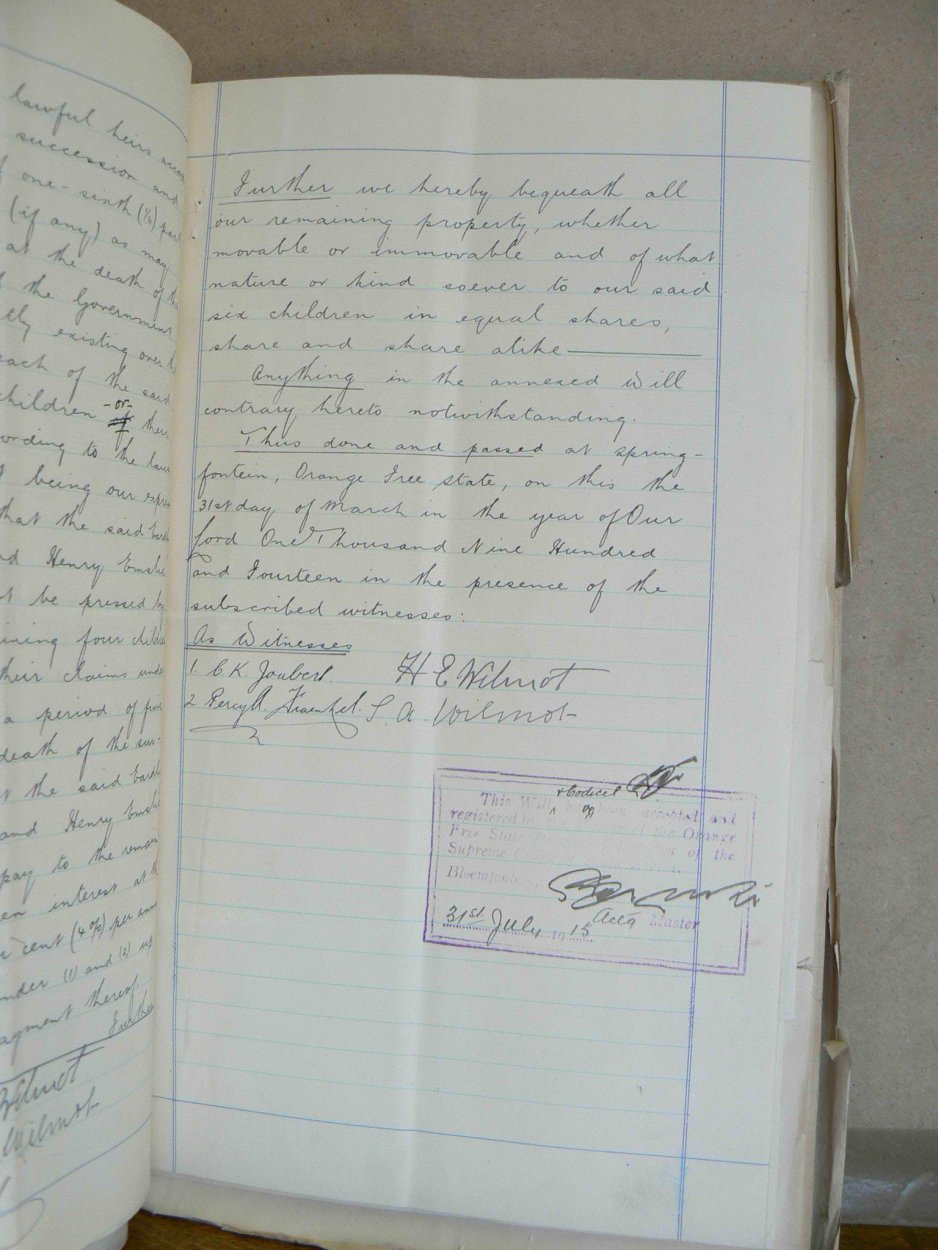 lawful heirs
succession and
one-sixth (1/6) part
(if any) as may
at the death of the
the Government
existing over
each of the said
children -or- their
according to the laws
being our
that the said
Henry
be pressed by
four children
their claims under
a period of
death of the
the said
and Henry
pay to the
interest at
cent (4%) per
under (1) and (2)
thereof
Further
Wilmot
Wilmot
Further we hereby bequeath all
our remaining property, whether
movable or immovable and of what
nature or kind soever to our said
six children in equal shares,
share and share alike
Anything in the annexed Will
contrary hereto notwithstanding.
Thus done and passed at Spring-
fontein, Orange Free State, on this the
31st day of March in the year of Our
Lord One Thousand Nine Hundred
and Fourteen in the presence of the
subscribed witnesses:
As Witnesses
1. C. K. Joubert H E Wilmot
2 Percy A. Fraenkel. S. A. Wilmot
+ Codicil
This Will accepted and
registered by of the Orange
Free State of the
Supreme
Bloemfontein
Actg Master
31st July 1915